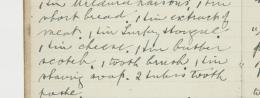 1 tin Mildura raisins, 1 tin
short bread, 1 tin extract of
meat, 1 tin Turkey &
1 tin cheese, 1 tin butter
scotch, 1 tooth brush, 1 tin
shaving soap, 2 tubes tooth
paste.